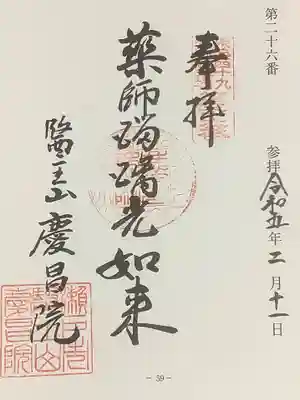 第二十六番
参拝 令和五年二月十一日
奉拝
薬師瑠璃光如来
醫王山 慶昌院
- 59 -